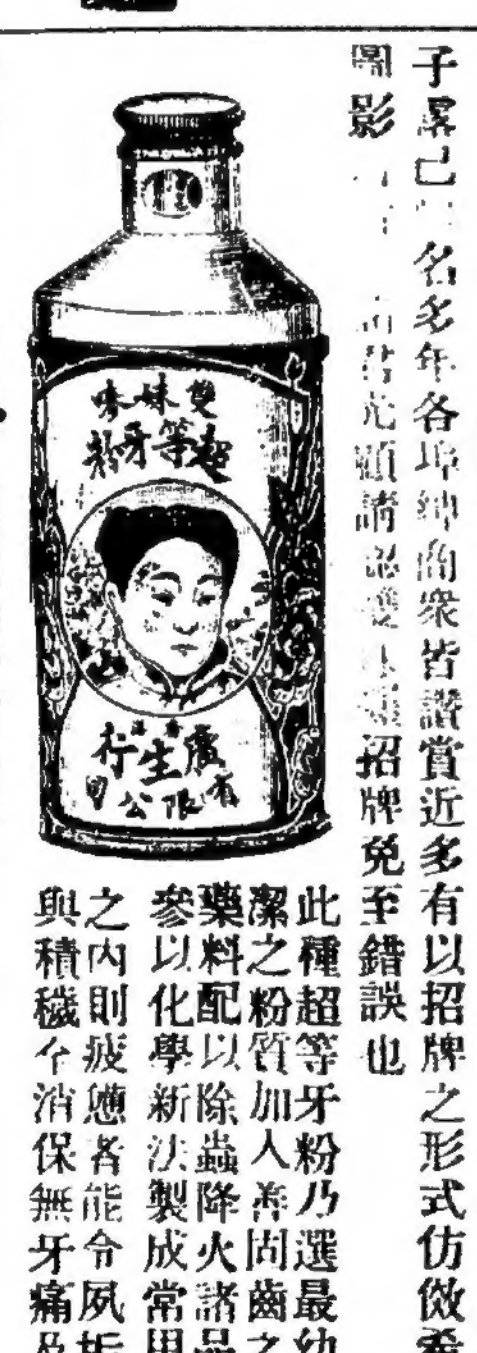 子畧已名多年各埠紳商衆皆讃賞近多有以招牌之形式仿傚
影光顧請招牌免至錯誤也
雙妹嚜
超等牙粉
香港
廣生行
有限公司
此種超等牙粉乃選最幼
潔之粉質加入善固齒之
藥料配以除蟲降火諸品
參以化學新法製成常用
之內則疲憊者能令夙垢
與積穢仝消保無牙痛及